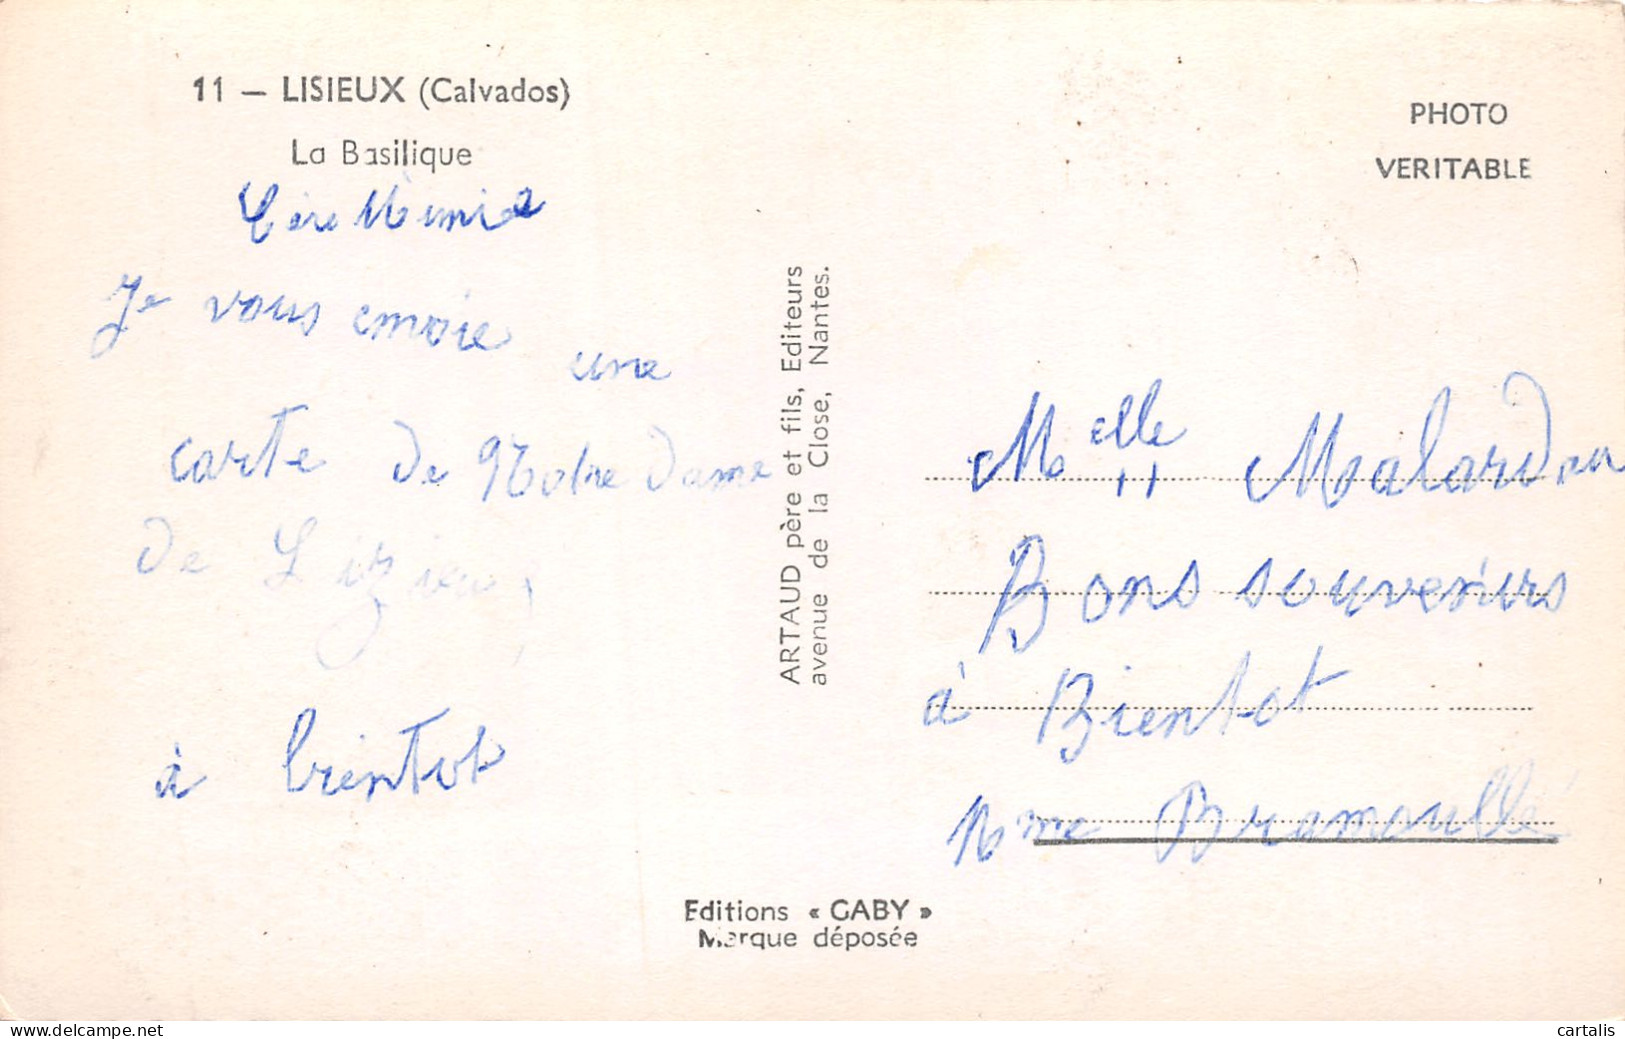 11 — LISIEUX (Calvados)
La Basilique
Je vous envoie
une
carte de Notre Dame
de Lizieux
à bientot
ARTAUD père et fils, Editeurs
avenue de la Close, Nantes.
PHOTO
VERITABLE
Melle Malardeau
Bons souvenirs
à Bientot
Mme Bramoullé
Editions « GABY »
Marque déposée
www.delcampe.net
cartalis